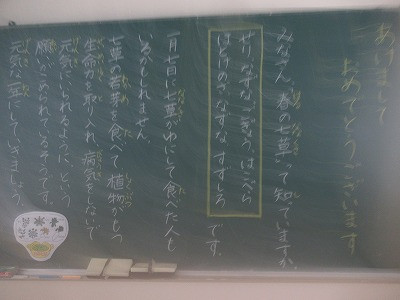 あけまして
おめでとうございます
みなさん、春の七草って知っていますか。
せり、なずな、ごぎょう、はこべら
ほとけのざ、すずな、すずしろ
です。
一月七日に七草がゆにして食べた人も
いるかもしれません。
七草の若芽を食べて植物がもつ
生命力を取り入れ、病気をしないで
元気にいられるように、という
願いがこめられているそうです。
元気な一年にしていきましょう。